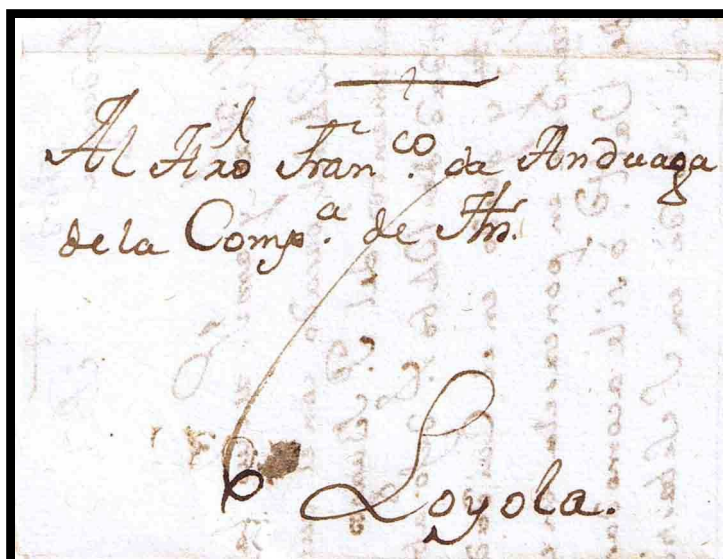 Al Hño Fran.co de Anduaga
de la Comp.a de Jhs.
6
Loyola.